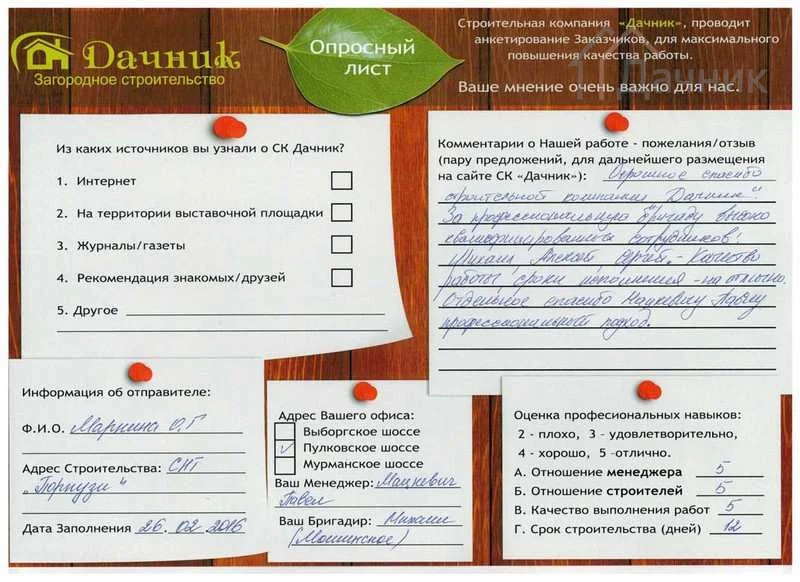 Дачник
Загородное строительство
Опросный
лист
Строительная компания «Дачник», проводит
анкетирование Заказчиков, для максимального
повышения качества работы.
Ваше мнение очень важно для нас.
Дачник
Из каких источников вы узнали о СК Дачник?
1. Интернет
2. На территории выставочной площадки
3. Журналы/газеты
4. Рекомендация знакомых/друзей
5. Другое
Комментарии о Нашей работе - пожелания/отзыв
(пару предложений, для дальнейшего размещения
на сайте СК «Дачник»): Огромное спасибо
строительной компании "Дачник".
За профессиональную бригаду высоко
квалифицированных сотрудников:
Михаил Алексей Сергей. - Качество
работы, сроки исполнения - на отлично.
Отдельное спасибо Мацкевичу Павлу
профессиональный подход.
Информация об отправителе:
Ф.И.О. Маркина О.Г
Адрес Строительства: СНТ
"Поркузи"
Дата Заполнения 26.02.2016
Адрес Вашего офиса:
Выборгское шоссе
Пулковское шоссе
Мурманское шоссе
Ваш Менеджер: Мацкевич
Павел
Ваш Бригадир: Михаил
Оценка професиональных навыков:
2 - плохо, 3 - удовлетворительно,
4 - хорошо, 5 -отлично.
А. Отношение менеджера 5
Б. Отношение строителей 5
В. Качество выполнения работ 5
Г. Срок строительства (дней) 12